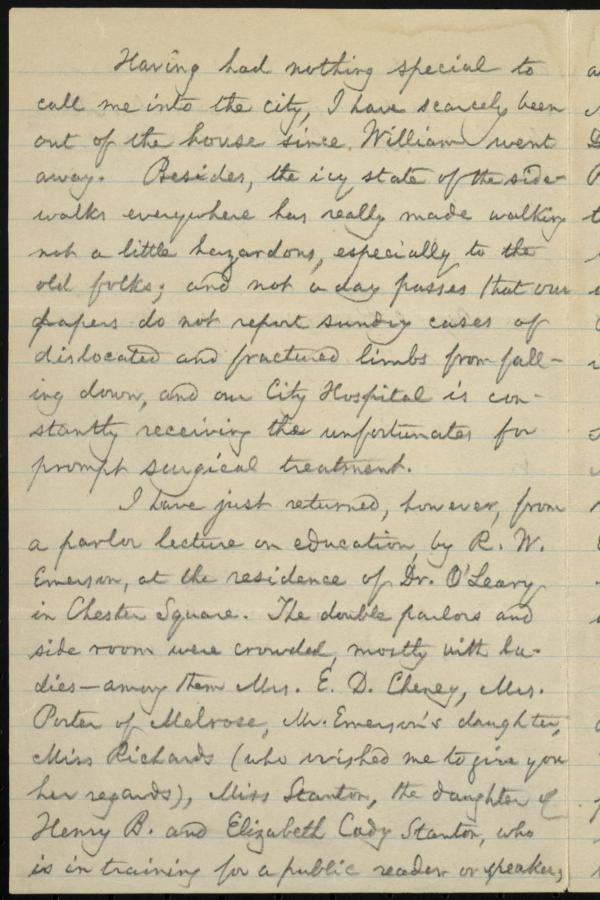 Having had nothing special to
call me into the city, I have scarcely been
out of the house since William went
away. Besides, the icy state of the side-
walks everywhere has really made walking
not a little hazardous, especially to the
old folks; and not a day passes that our
papers do not report sundry cases of
dislocated and fractured limbs from fall-
ing down, and our City Hospital is con-
stantly receiving the unfortunates for
prompt surgical treatment.
I have just returned, however, from
a parlor lecture on education, by R. W.
Emerson, at the residence of Dr. O'Leary
in Chester Square. The double parlors and
side room were crowded, mostly with la-
dies—among them Mrs. E. D. Cheney, Mrs.
Porter of Melrose, Mr. Emerson's daughter,
Miss Richards (who wished me to give you
her regards), Miss Stanton, the daughter of
Henry B. and Elizabeth Cady Stanton, who
is in training for a public reader or speaker,